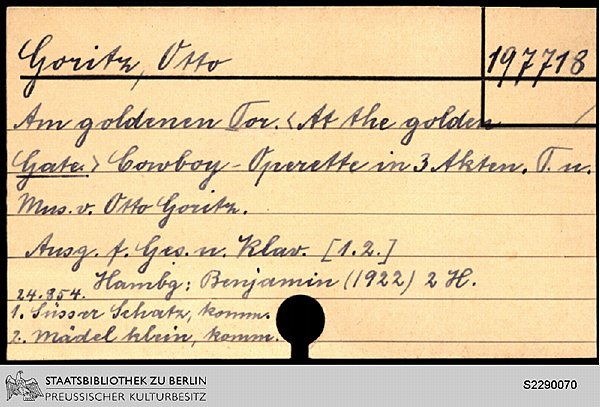 Goritz, Otto
197718
Am goldenen Tor. <At the golden
Gate.> Cowboy-Operette in 3 Akten. T. u.
Mus. v. Otto Goritz.
Ausg. f. Ges. u. Klav. [1.2.]
Hambg: Benjamin (1922) 2 H.
24.854.
1. Süsser Schatz, komm.
2. Mädel klein, komm.
STAATSBIBLIOTHEK ZU BERLIN
PREUSSISCHER KULTURBESITZ
S2290070